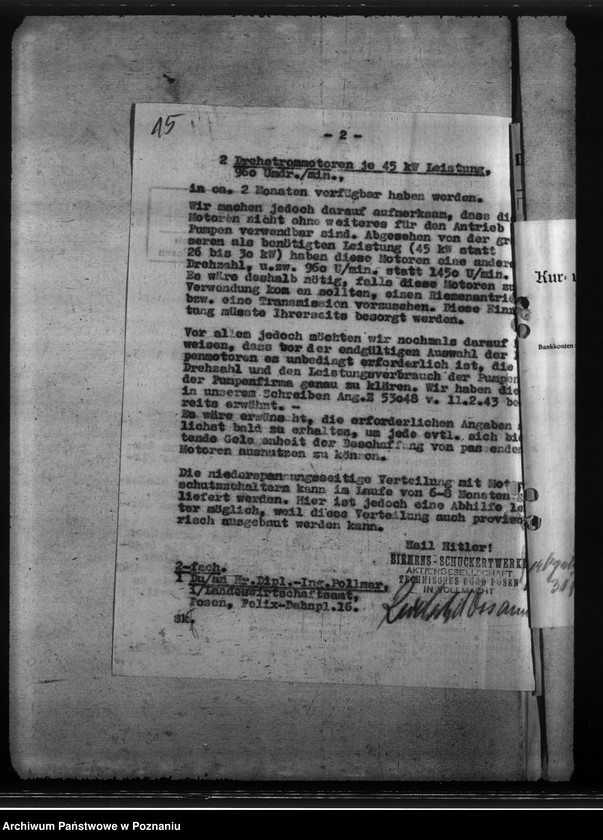 15
- 2 -
2 Drehstrommotoren je 45 kW Leistung,
960 Umdr./min.,
in ca. 2 Monaten verfügbar haben werden.
Wir machen jedoch darauf aufmerksam, dass di
Motoren nicht ohne weiteres für den Antrieb
Pumpen verwendbar sind. Abgesehen von der gr
seren als benötigten Leistung (45 kW statt
26 bis 30 kW) haben diese Motoren eine andere
Drehzahl, u.zw. 960 U/min. statt 1450 U/min.
Es wäre deshalb nötig, falls diese Motoren zu
Verwendung kom en sollten, einen Riemenantrie
bzw. eine Transmission vorzusehen. Diese Einr
tung müsste Ihrerseits besorgt werden.
Vor allem jedoch möchten wir nochmals darauf
weisen, dass vor der endgültigen Auswahl der
penmotoren es unbedingt erforderlich ist, die
Drehzahl und den Leistungsverbrauch der Pumpen
der Pumpenfirma genau zu klären. Wir haben die
in unserem Schreiben Ang.Z 53048 v. 11.2.43 be
reits erwähnt. -
Es wäre erwünscht, die erforderlichen Angaben
lichst bald zu erhalten, um jede evtl. sich bie
tende Gele enheit der Beschaffung von pas enden
Motoren ausnutzen zu können.
Die niederspannungsseitige Verteilung mit Mot
schutzschaltern kann im Laufe von 6-8 Monaten
liefert werden. Hier ist jedoch eine Abhilfe le
ter möglich, weil diese Verteilung auch proviso
risch ausgebaut werden kann.
Heil Hitler!
SIEMENS-SCHUCKERTWERKE
AKTIENGESELLSCHAFT
TECHNISCHES BÜRO POSEN
IN VOLLMACHT
2-fach.
1 Du/an Hr.Dipl.-Ing.Pollmar,
i/Landeswirtschaftsamt,
Posen, Felix-Dahnpl.16.
Sk.
Kur-
Bankkonten
Archiwum Państwowe w Poznaniu